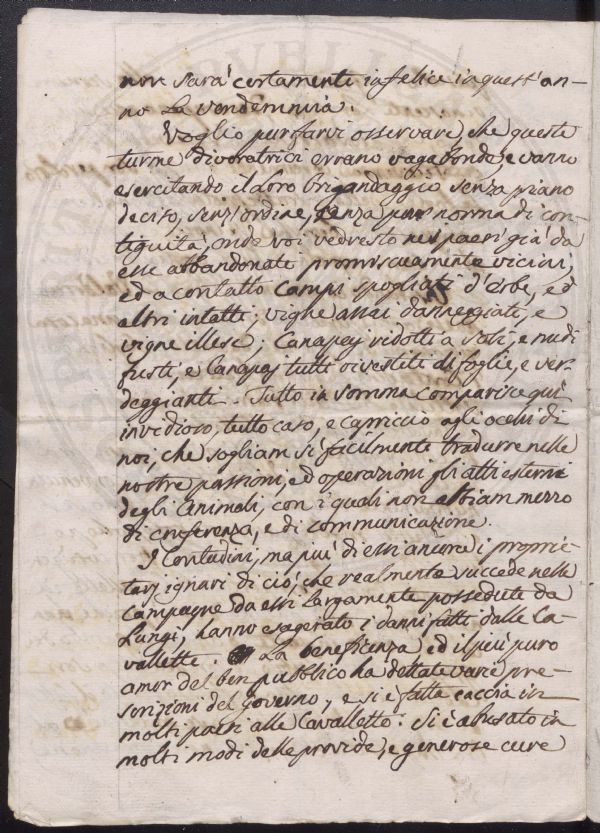 non sarà certamente infelice in quest'an-
no la vendemmia.
Voglio pur farvi osservare, che queste
turme divoratrici errano vagabonde, e vanno
esercitando il loro brigandaggio senza piano
deciso, senz'ordine, senza pur norma di con-
tiguità, onde voi vedreste nei paesi già da
esse abbandonati promiscuamente vicini,
ed a contatto campi spogliati d'erbe, ed
altri intatti; vighe assai danneggiati, e
vigne illese; Canapaj ridotti a soli, e nudi
fusti, e Canapaj tutti rivestiti di foglie, e ver-
deggianti. Tutto in somma comparisce qui
invidioso, tutto caso, e capriccio agli occhi di
noi, che sogliam sì facilmente tradurre nelle
nostre passioni, ed operazioni gli atti esterni
degli animali, con i quali non abbiam mezzo
di conferenza, e di communicazione.
I Contadini, ma più di essi ancora i proprie-
tarj ignari di ciò, che realmente succede nelle
campagne da essi largamente possedute da
lungi, hanno esagerato i danni fatti dalle Ca-
vallette. La beneficenza ed il più puro
amor del ben pubblico ha dettate varie pre-
scrizioni del Governo, e si è fatta caccia in
molti paesi alle Cavallette. Si è abusato in
molti modi delle provide, e generose cure